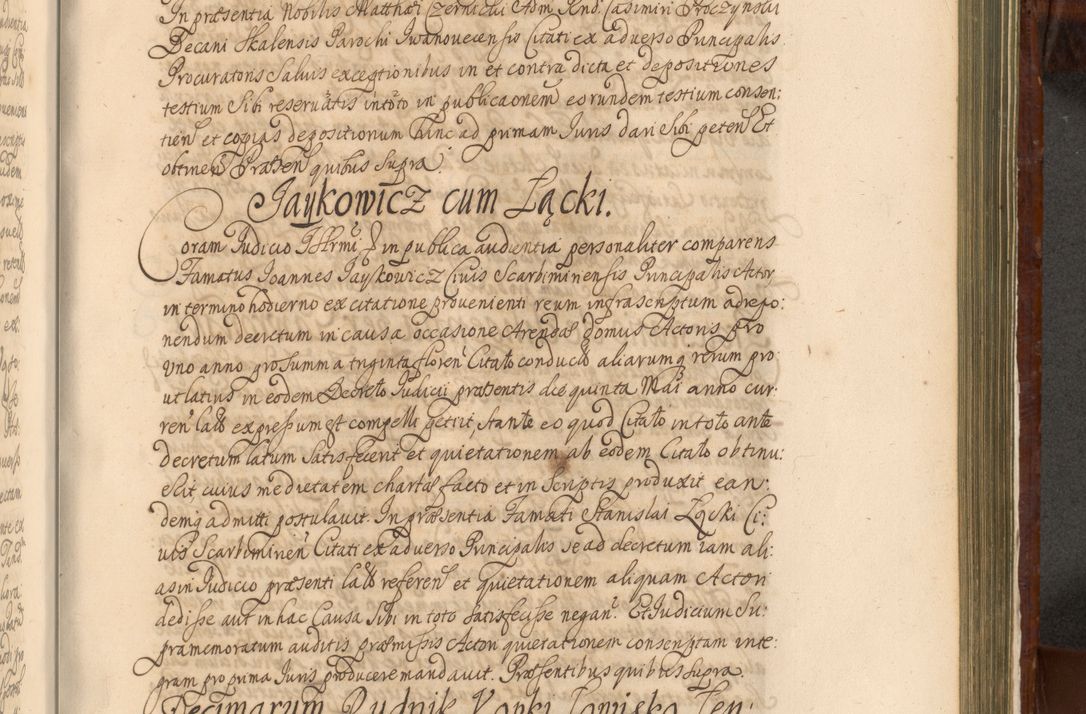 In præsentia Nobilis Matthæi Czernicki Adm. Rnd. Casimiri Tłoczynski
Decani Skalensis Parochi Iwanovecensis Citati ex adverso Principalis
Procuratoris Salvis exceptionibus in et contra dicta et depositiones
testium Sibi reservatis in toto in publicaonem eorundem testium consen:
tien et copias depositionum hinc ad primam Juris dari Sibi peten Et
obtinen Præsen quibus supra.
Jaykowicz cum Łącki.
Coram Judicio Illrmi in publica audientia personaliter comparens
Famatus Joannes Jaykowicz Civis Scarbimirensis Principalis Actor
in termino hodierno ex citatione provenienti reum infrascriptum ad repo:
nendum decretum in causa occasione Arendæ domus Actoris pro
uno anno pro summa triginta floren Citato conducto aliarumq rerum pro
ut latius in eodem Decreto Judicii præsentis die quinta Maii anno cur:
ren lato expressum est compelli petiit, stante eo quod Citato in toto ante
decretum latum satisfecerit et quietationem ab eodem Citato obtinu:
erit, cuius medietatem chartæ facto et in scriptis produxit ean:
demq admitti postulavit. In præsentia Famati Stanislai Łącki Ci:
vis Scarbimirien Citati ex adverso Principalis se ad decretum iam ali:
as in Judicio præsenti lato referen et quietationem aliquam Actori
dedisse aut in hac Causa Sibi in toto satisfecisse negan. Et Judicium Su:
pramemoratum auditis præmissis Actori quietationem conscriptam inte:
gram pro prima Juris producere mandavit. Præsentibus quibus supra.
Decimarum Rudnik